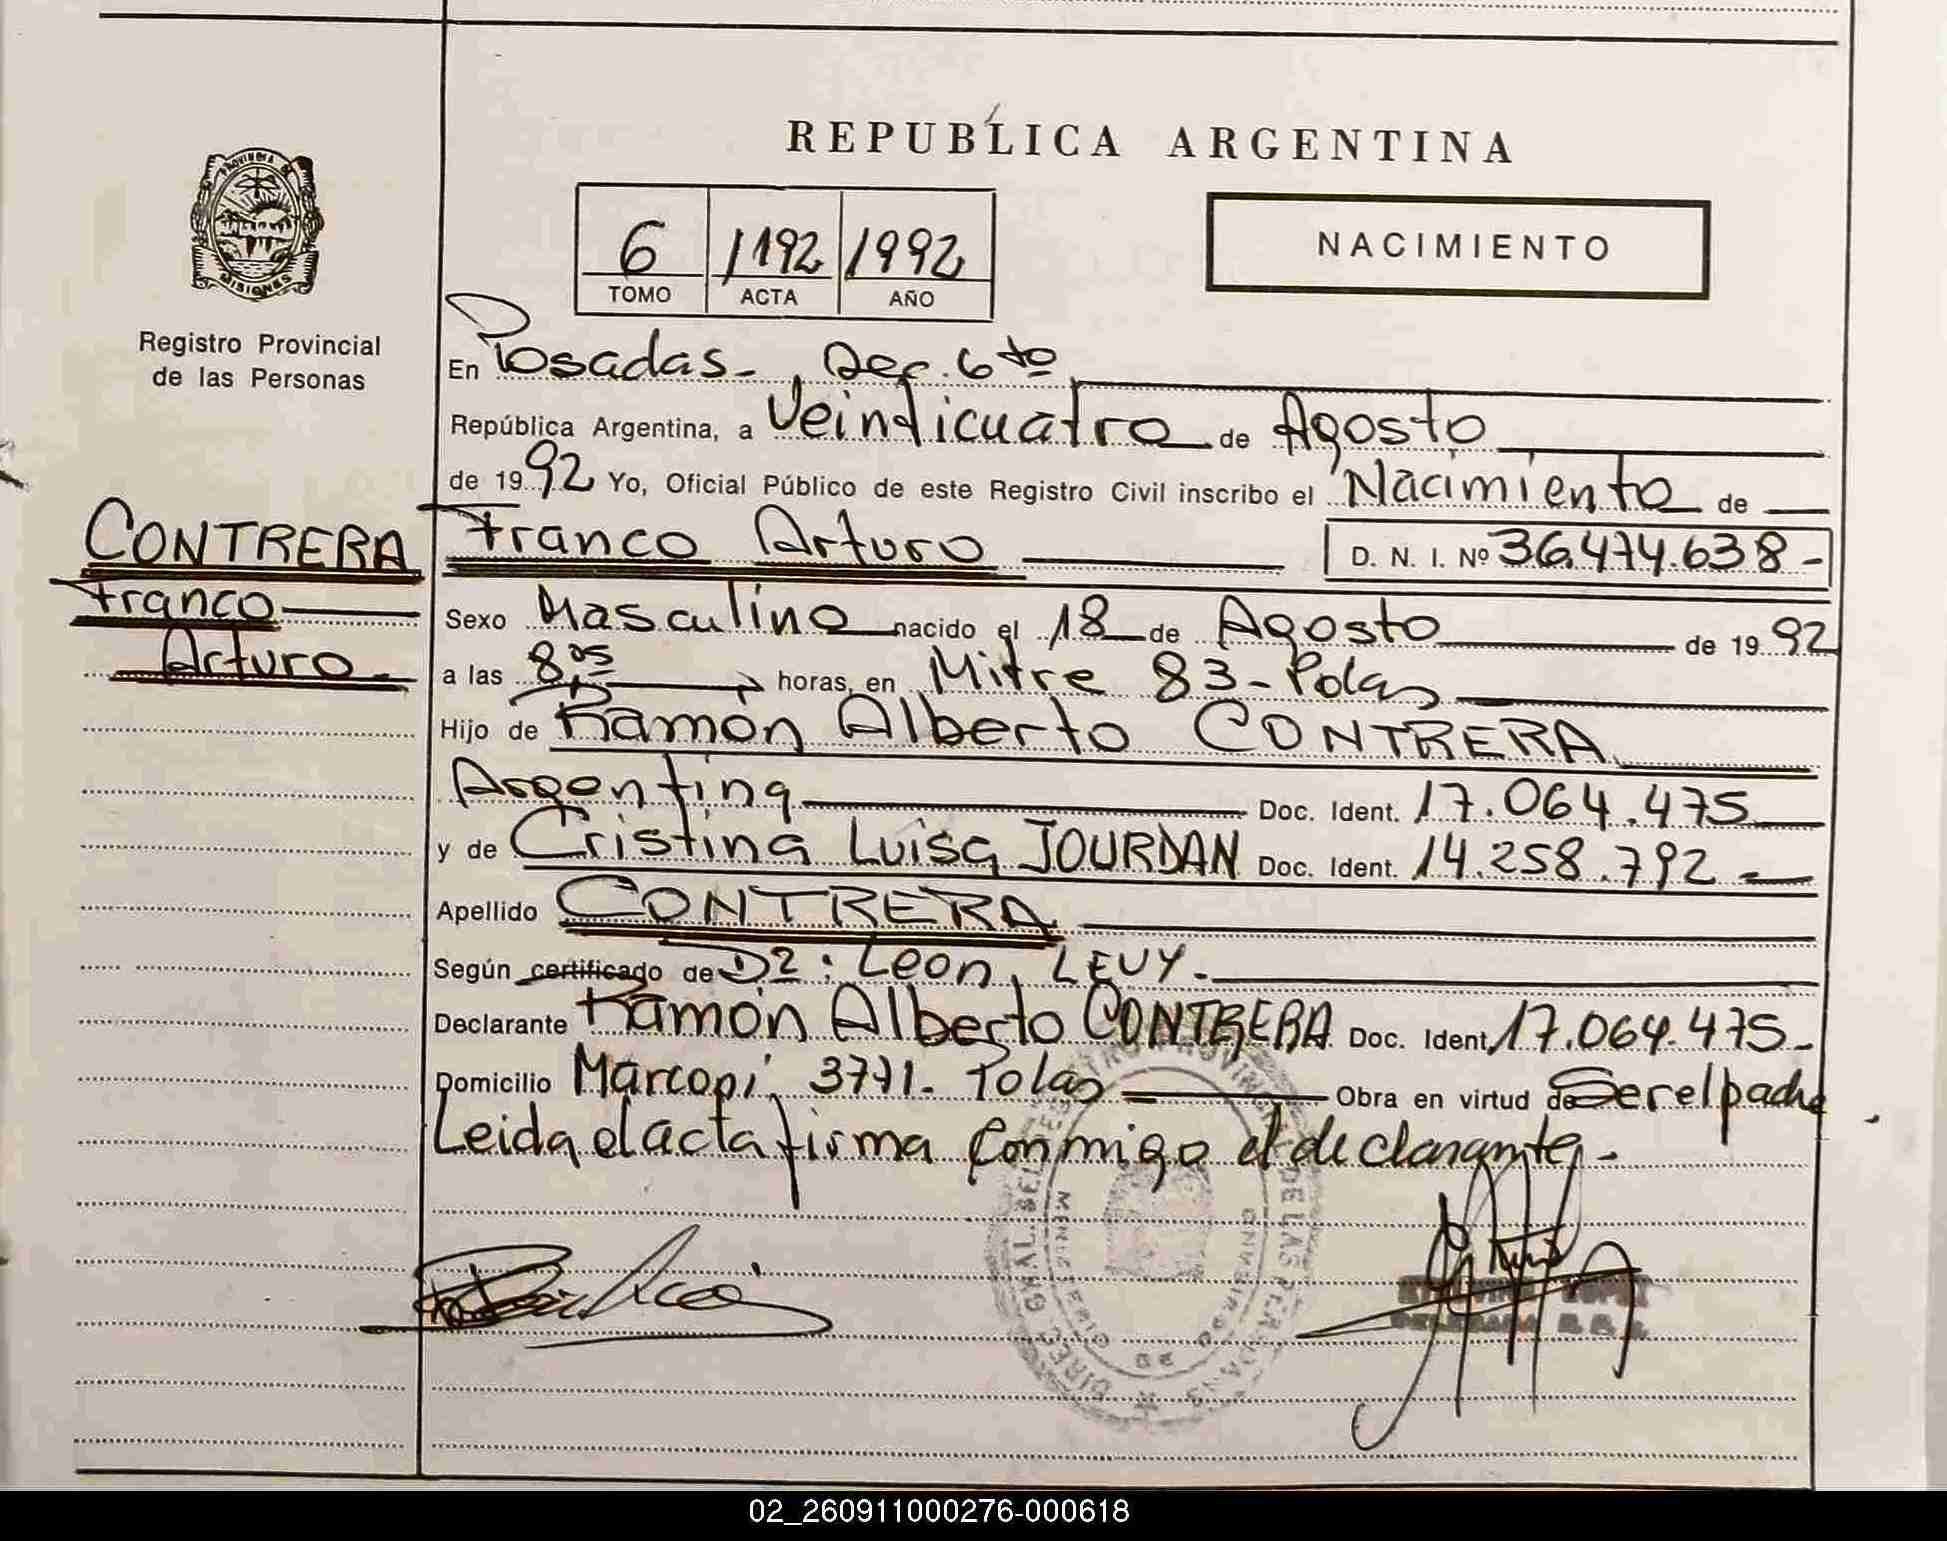 REPUBLICA ARGENTINA
PROVINCIA DE MISIONES
6 1192 1992
TOMO ACTA AÑO
NACIMIENTO
Registro Provincial
de las Personas
CONTRERA
Franco
Arturo
En Posadas - Dec. 6to
República Argentina, a Veinticuatro de Agosto
de 1992 Yo, Oficial Público de este Registro Civil inscribo el Nacimiento de
Franco Arturo D. N. I. Nº 36.474.638-
Sexo Masculino nacido el 18 de Agosto de 1992
a las 8,05 horas, en Mitre 83-Pdas
Hijo de Ramón Alberto CONTRERA
Argentina Doc. Ident. 17.064.475
y de Cristina Luisa JOURDAN Doc. Ident. 14.258.792
Apellido CONTRERA
Según certificado de D2: Leon, LEVY.
Declarante Ramón Alberto CONTRERA Doc. Ident. 17.064.475-
Domicilio Marconi 3771- Pdas Obra en virtud de Ser el padre
Leida el acta firma conmigo el declarante.-
02_260911000276-000618